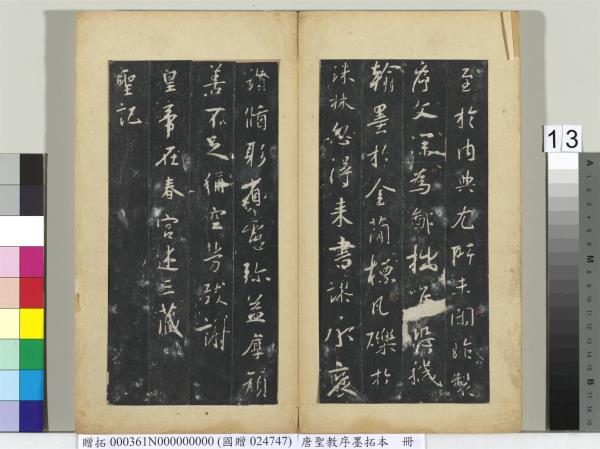 至於內典尤所未閑昨製
序文深為鄙拙唯恐穢
翰墨於金簡標瓦礫於
珠林忽得來書謬承褒
讚循躬省慮彌益厚顏
善不足稱空勞致謝
皇帝在春宮述三藏
聖記
13
贈拓 000361N000000000 (國贈 024747) 唐聖教序墨拓本 冊